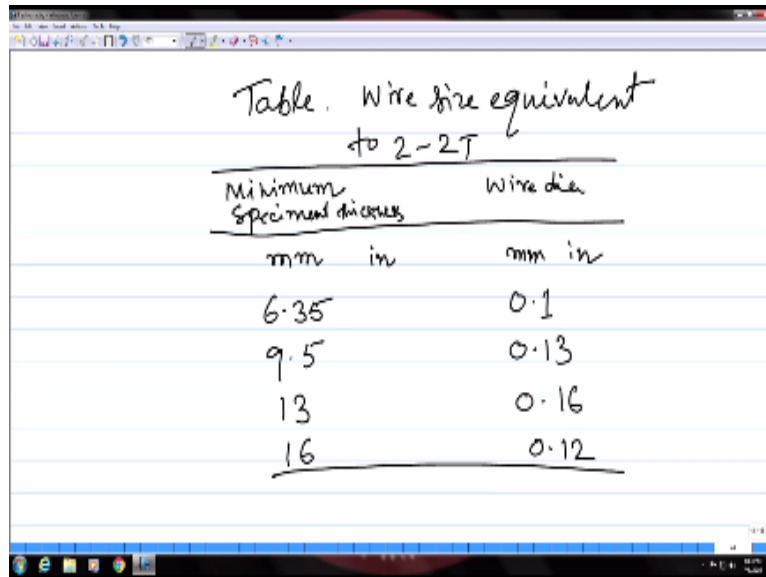 Table. Wire size equivalent
to 2-2T
Minimum Wire dia
Speciment thickness
mm in mm in
6.35 0.1
9.5 0.13
13 0.16
16 0.12